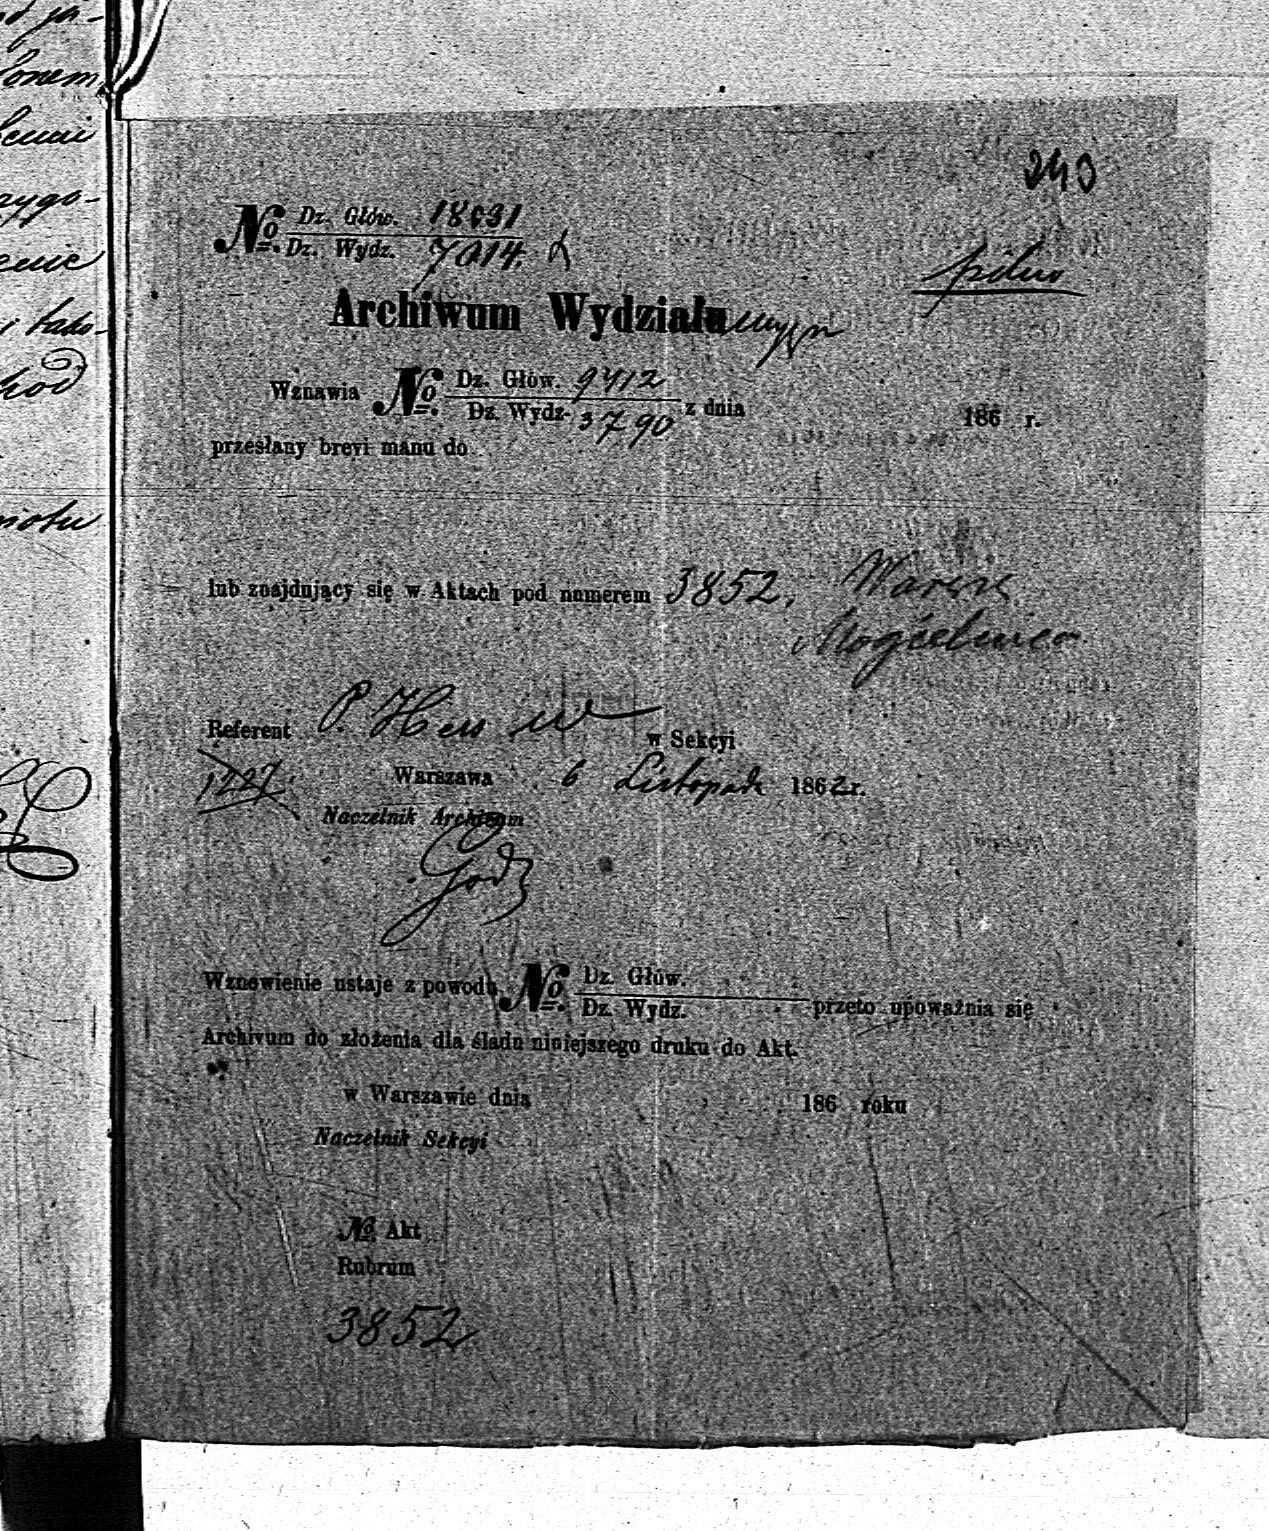 243
No. Dz. Głów. 18031
Dz. Wydz. 7014.
pilno
Archiwum Wydziału
Wznawia No. Dz. Głów. 9412
Dz. Wydz. 3790 z dnia 186 r.
przesłany brevi manu do
lub znajdujący się w Aktach pod numerem 3852,
Mogielnica
Referent P. Hess w Sekcyi
1227. Warszawa 6 Listopada 1862 r.
Naczelnik Archiwum
Wznowienie ustaje z powodu No. Dz. Głów.
Dz. Wydz. przeto upoważnia się
Archivum do złożenia dla śladu niniejszego druku do Akt.
w Warszawie dnia 186 roku
Naczelnik Sekcyi
No. Akt
Rubrum
3852